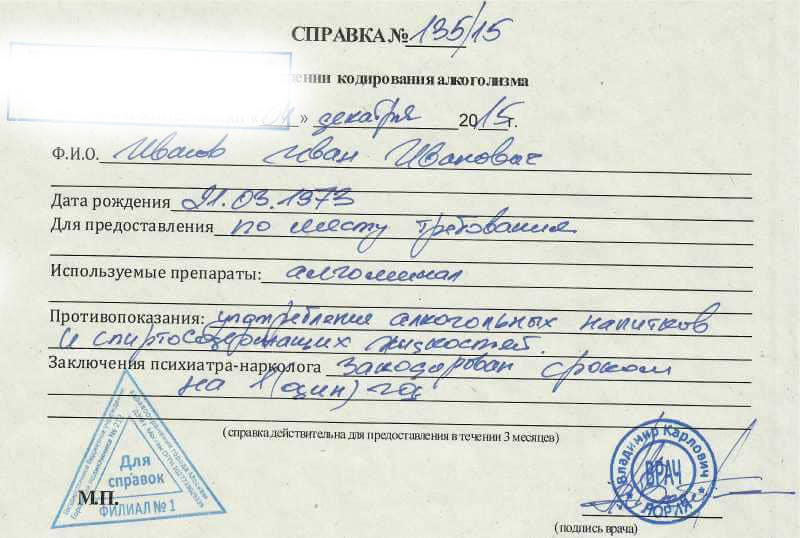 СПРАВКА № 135/15
кодирования алкоголизма
« 01 » декабря 2015 г.
Ф.И.О. Иванов Иван Иванович
Дата рождения 21.03.1973
Для предоставления по месту требования
Используемые препараты: алгоминал
Противопоказания: употребление алкогольных напитков
и спиртосодержащих жидкостей.
Заключения психиатра-нарколога Закодирован сроком
на 1 (один) год
(справка действительна для предоставления в течении 3 месяцев)
Для
справок
ФИЛИАЛ № 1
М.П.
Владимир Карлович
ВРАЧ
(подпись врача)